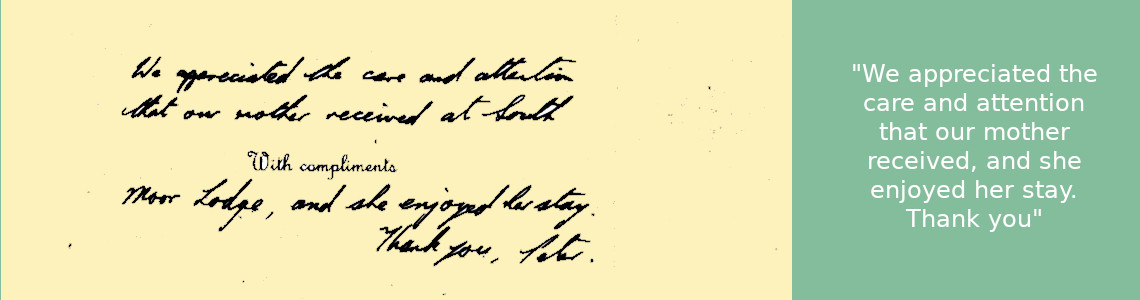 We appreciated the care and attention
that our mother received at South
With compliments
Moor Lodge, and she enjoyed her stay.
Thank you, Peter.
"We appreciated the
care and attention
that our mother
received, and she
enjoyed her stay.
Thank you"